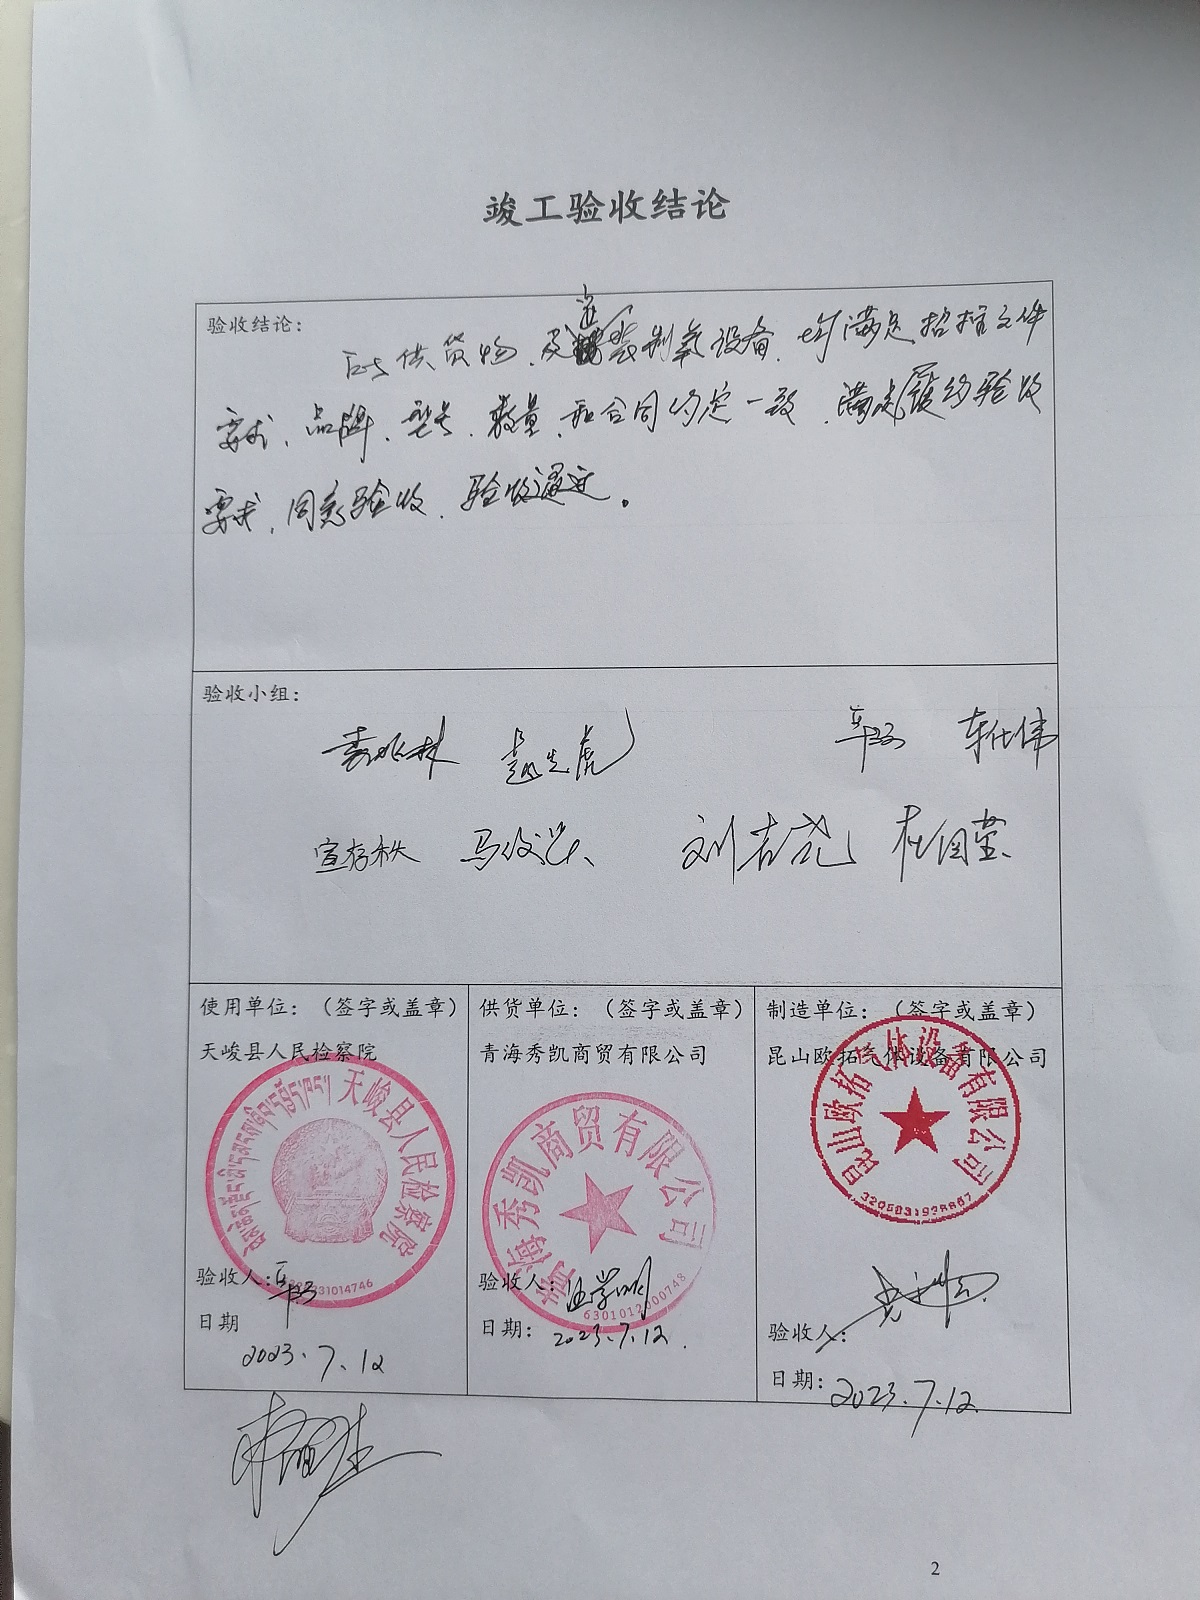 竣工验收结论
验收结论:
所供货物、及安装制氧设备、均满足招标文件
要求、品牌、型号、数量、和合同约定一致、满足履约验收
要求、同意验收、验收通过。
验收小组:
宣存秩 马俊兴 刘吉尧
使用单位:(签字或盖章)
天峻县人民检察院
供货单位:(签字或盖章)
青海秀凯商贸有限公司
制造单位:(签字或盖章)
昆山欧拓气体设备有限公司
天峻县人民检察院
青海秀凯商贸有限公司
6301012000748
昆山欧拓气体设备有限公司
验收人:
日期
2023.7.12
验收人:
日期:
2023.7.12.
验收人:
日期:
2023.7.12.
2